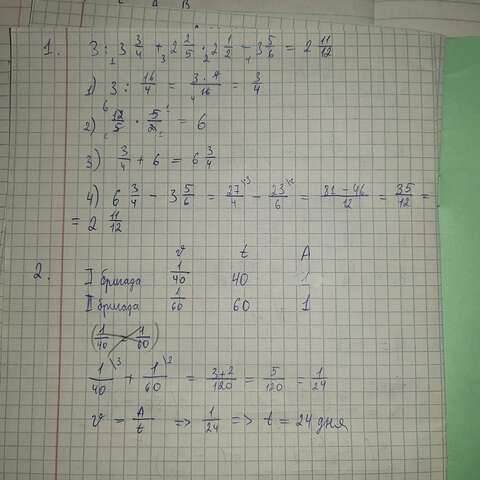 1. 3 : 3 3/4 + 2 2/5 · 2 1/2 - 3 5/6 = 2 11/12
1) 3 : 16/4 = 3 · 4/16 = 3/4
2) 12/5 · 5/2 = 6
3) 3/4 + 6 = 6 3/4
4) 6 3/4 - 3 5/6 = 27/4 \3 - 23/6 \2 = 81 - 46/12 = 35/12 =
= 2 11/12
2. v t A
I бригада 1/40 40 1
II бригада 1/60 60 1
(1/40 1/60)
1/40 \3 + 1/60 \2 = 3+2/120 = 5/120 = 1/24
v = A/t => 1/24 => t = 24 дня